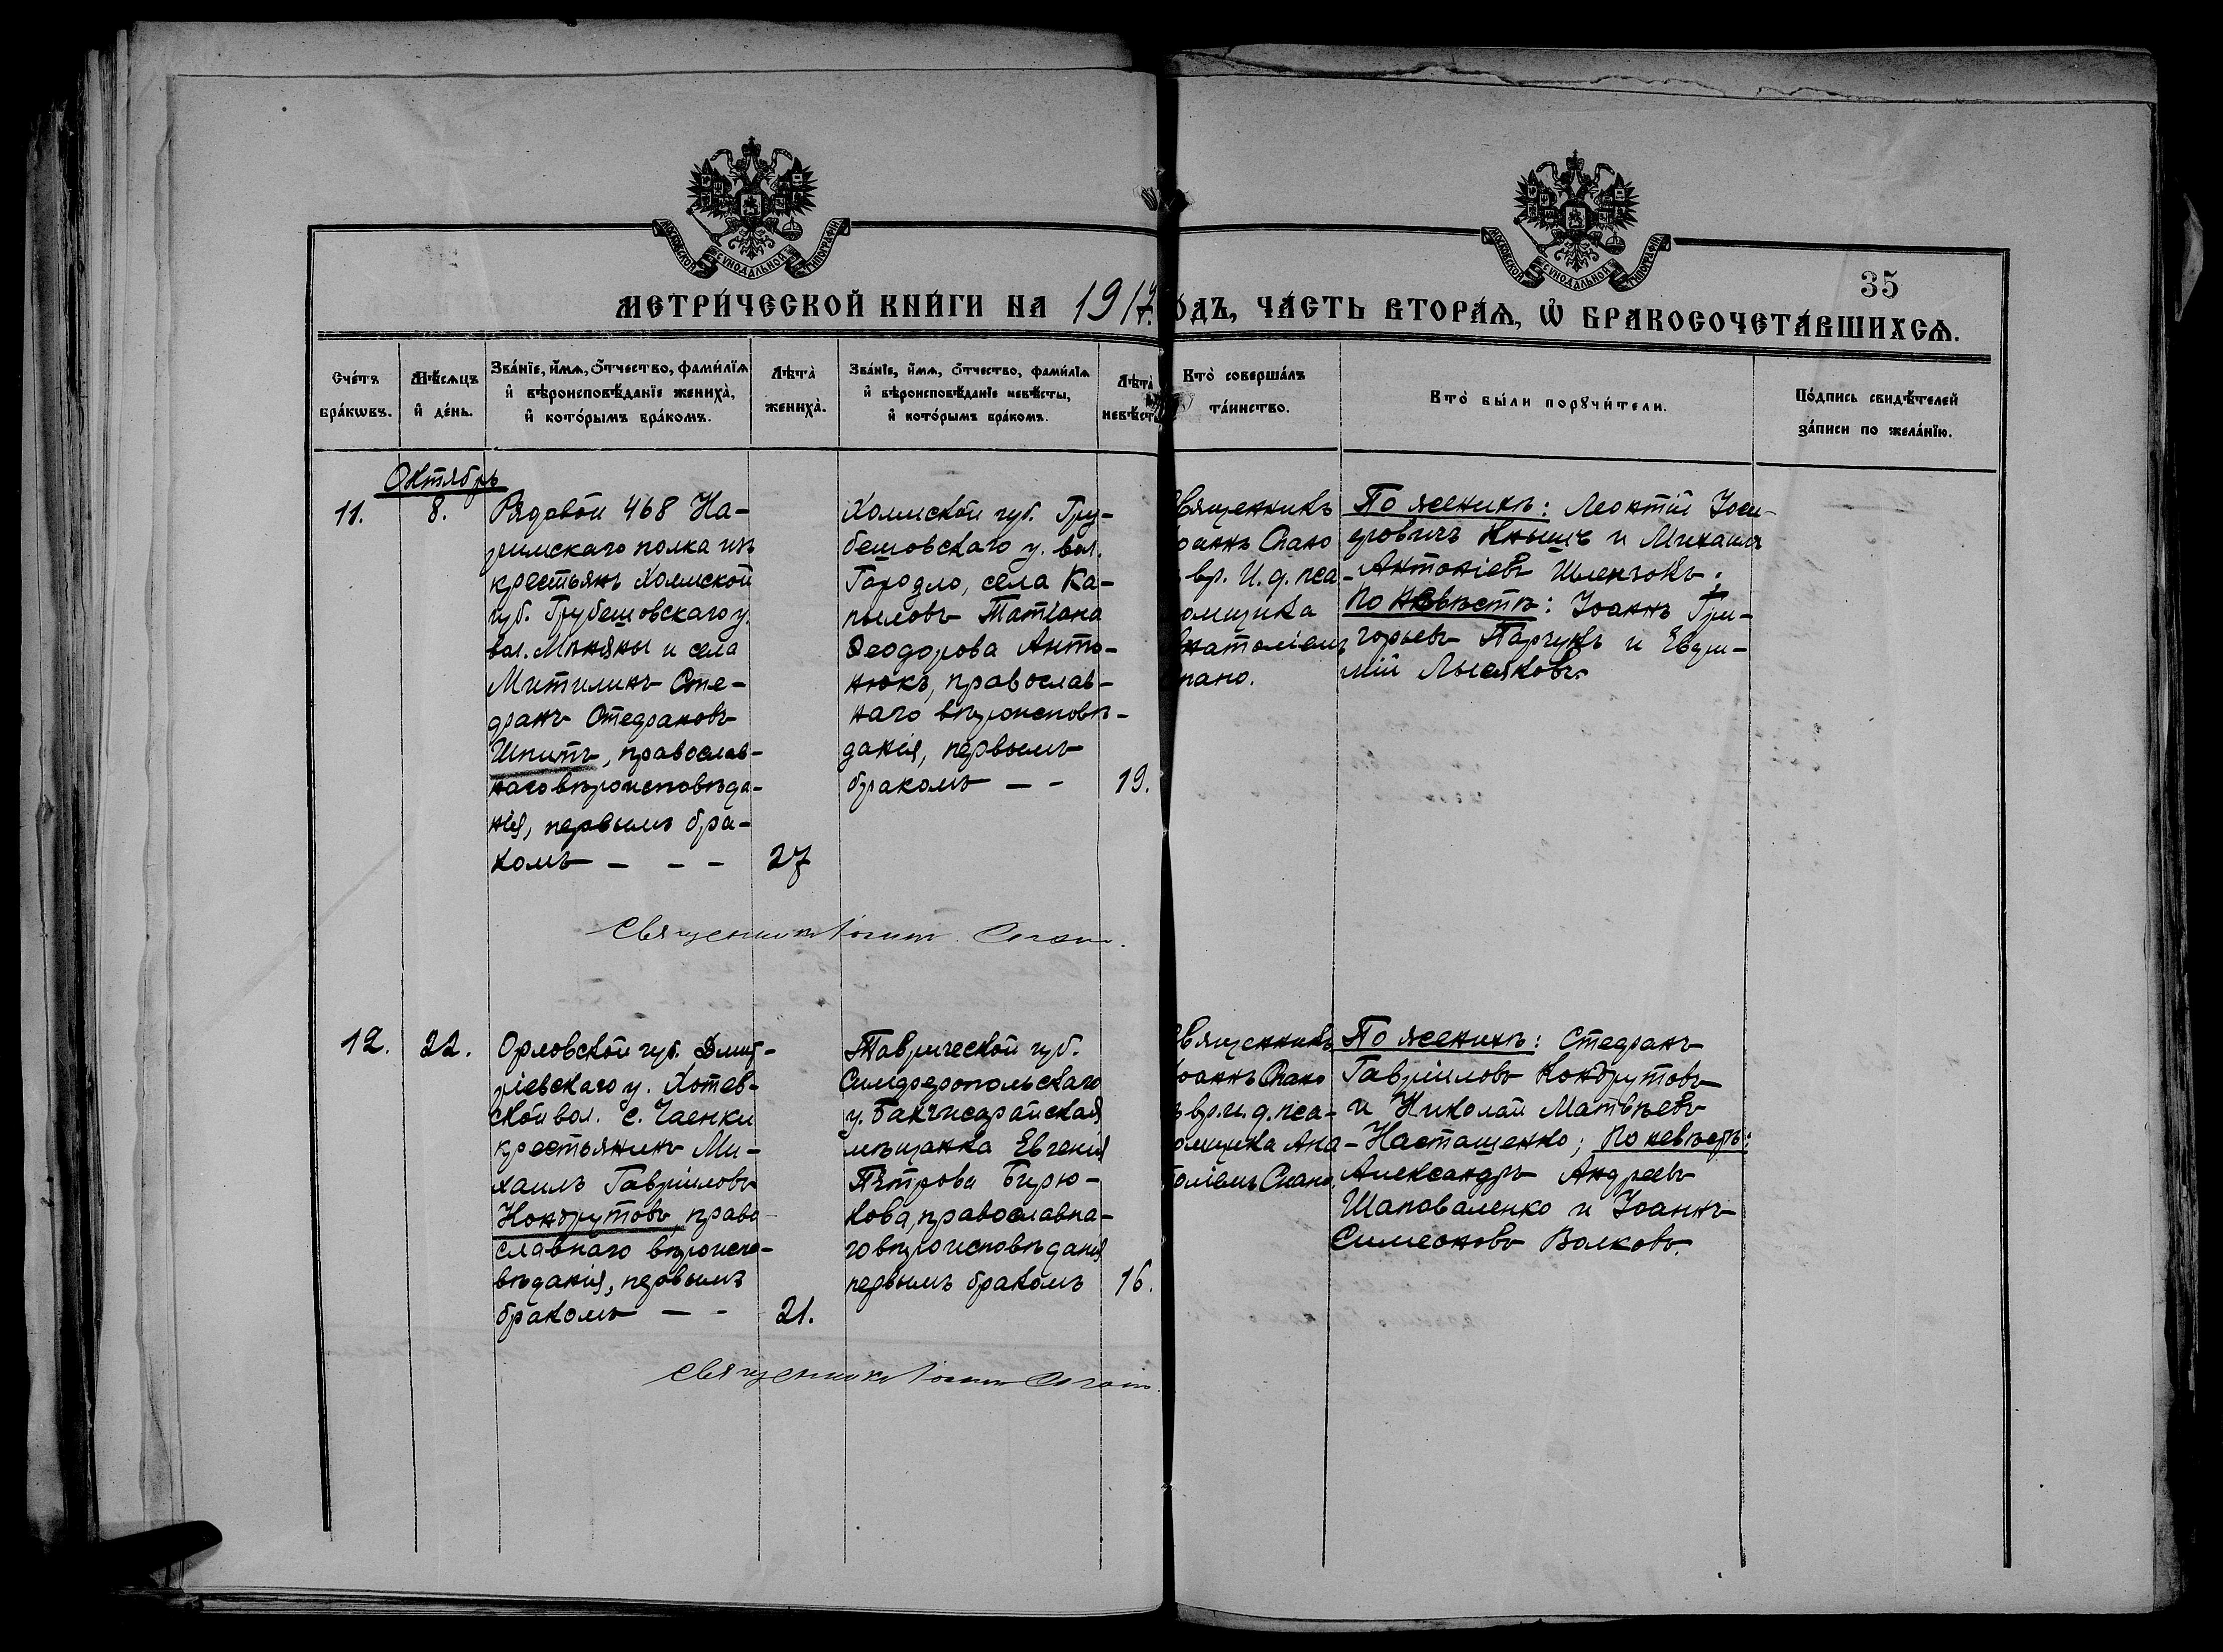 МОСКОВСКОЙ СѴНОДАЛЬНОЙ ТИПОГРАФІИ
МОСКОВСКОЙ СѴНОДАЛЬНОЙ ТИПОГРАФІИ
35
МЕТРИ́ЧЕСКОЙ КНИ́ГИ НА 1917
ОДЪ, ЧА́СТЬ ВТОРА́Ѧ, Ѡ҆ БРАКОСОЧЕТА́ВШИХСѦ.
Сче́тъ
бра́кѡвъ.
Мѣ́сѧцъ
и҆ де́нь.
Зва́нїе, и҆́мѧ, ѻ҆́тчество, фами́лїѧ
и҆ вѣроисповѣ́данїе жениха̀,
и҆ кото́рымъ бра́комъ.
Лѣ́та̀
жениха̀.
Зва́нїе, и҆́мѧ, ѻ҆́тчество, фами́лїѧ
и҆ вѣроисповѣ́данїе невѣ́сты,
и҆ кото́рымъ бра́комъ.
Лѣ́та̀
невѣ́ст
Кто̀ соверша́лъ
та́инство.
Кто̀ бы́ли порꙋчи́тели.
По́дпись свидѣ́телей
за́писи по жела́нїю.
Октябрь
11.
8.
Рядовой 468 На-
рымскаго полка изъ
крестьянъ Холмской
губ. Грубешовскаго у.
вол. Мѣняны и села
Митилинъ Сте-
фанъ Стефановъ
Шпитъ, православ-
наго вѣроисповѣда-
нія, первымъ бра-
комъ — - —
27
Холмской губ. Гру-
бешовскаго у. вол.
Городло, села Ко-
пыловъ Татіана
Ѳеодорова Анто-
нюкъ, православ-
наго вѣроисповѣ-
данія, первымъ
бракомъ — -
19.
вященникъ
оаннъ Спано
вр. И. д. пса-
омщика
Анатоліемъ
пано.
По женихѣ: Леонтій Іоси-
фовичъ Кнышъ и Михаилъ
Антоніевъ Шленчокъ;
По невѣстѣ: Іоаннъ Гри-
горьевъ Парчукъ и Евфи-
мій Лысяковъ.
Священникъ Іоаннъ Спано.
12.
22.
Орловской губ. Дмит-
ріевскаго у. Хотев-
ской вол. с. Чаенки
крестьянинъ Ми-
хаилъ Гавріиловъ
Кондрутовъ, право
славнаго вѣроиспо-
вѣданія, первымъ
бракомъ — -
21.
Таврической губ.
Симферопольскаго
у. Бахчисарайская
мѣщанка Евгенія
Петрова Бирю-
кова, православна-
го вѣроисповѣданія
первымъ бракомъ
16.
вященникъ
оаннъ Спано
вр. и. д. пса-
омщика Ана-
оліемъ Спано.
По женихѣ: Стефанъ
Гавріиловъ Кондрутовъ
и Николай Матвѣевъ
Насташенко; По невѣстѣ:
Александръ Андреевъ
Шаповаленко и Іоаннъ
Симеоновъ Волковъ.
Священникъ Іоаннъ Спано